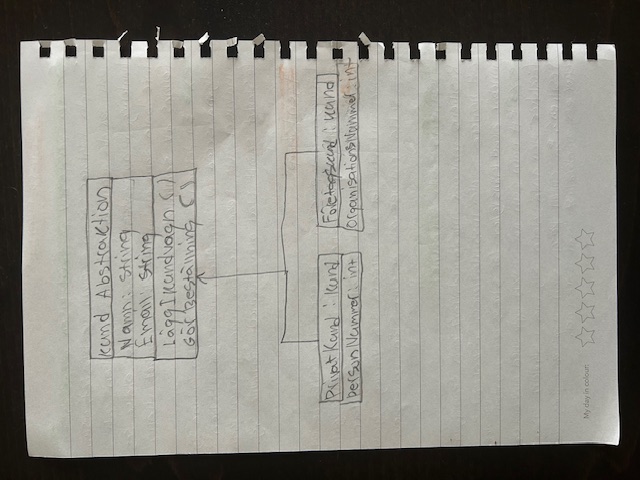 Kund Abstraktion
Namn: String
Email: String
LäggIKundvagn ()
Gör Beställning ()
PrivatKund : Kund
PersonNummer : int
Företagskund : Kund
OrganisationsNummer : int
My day in colour: